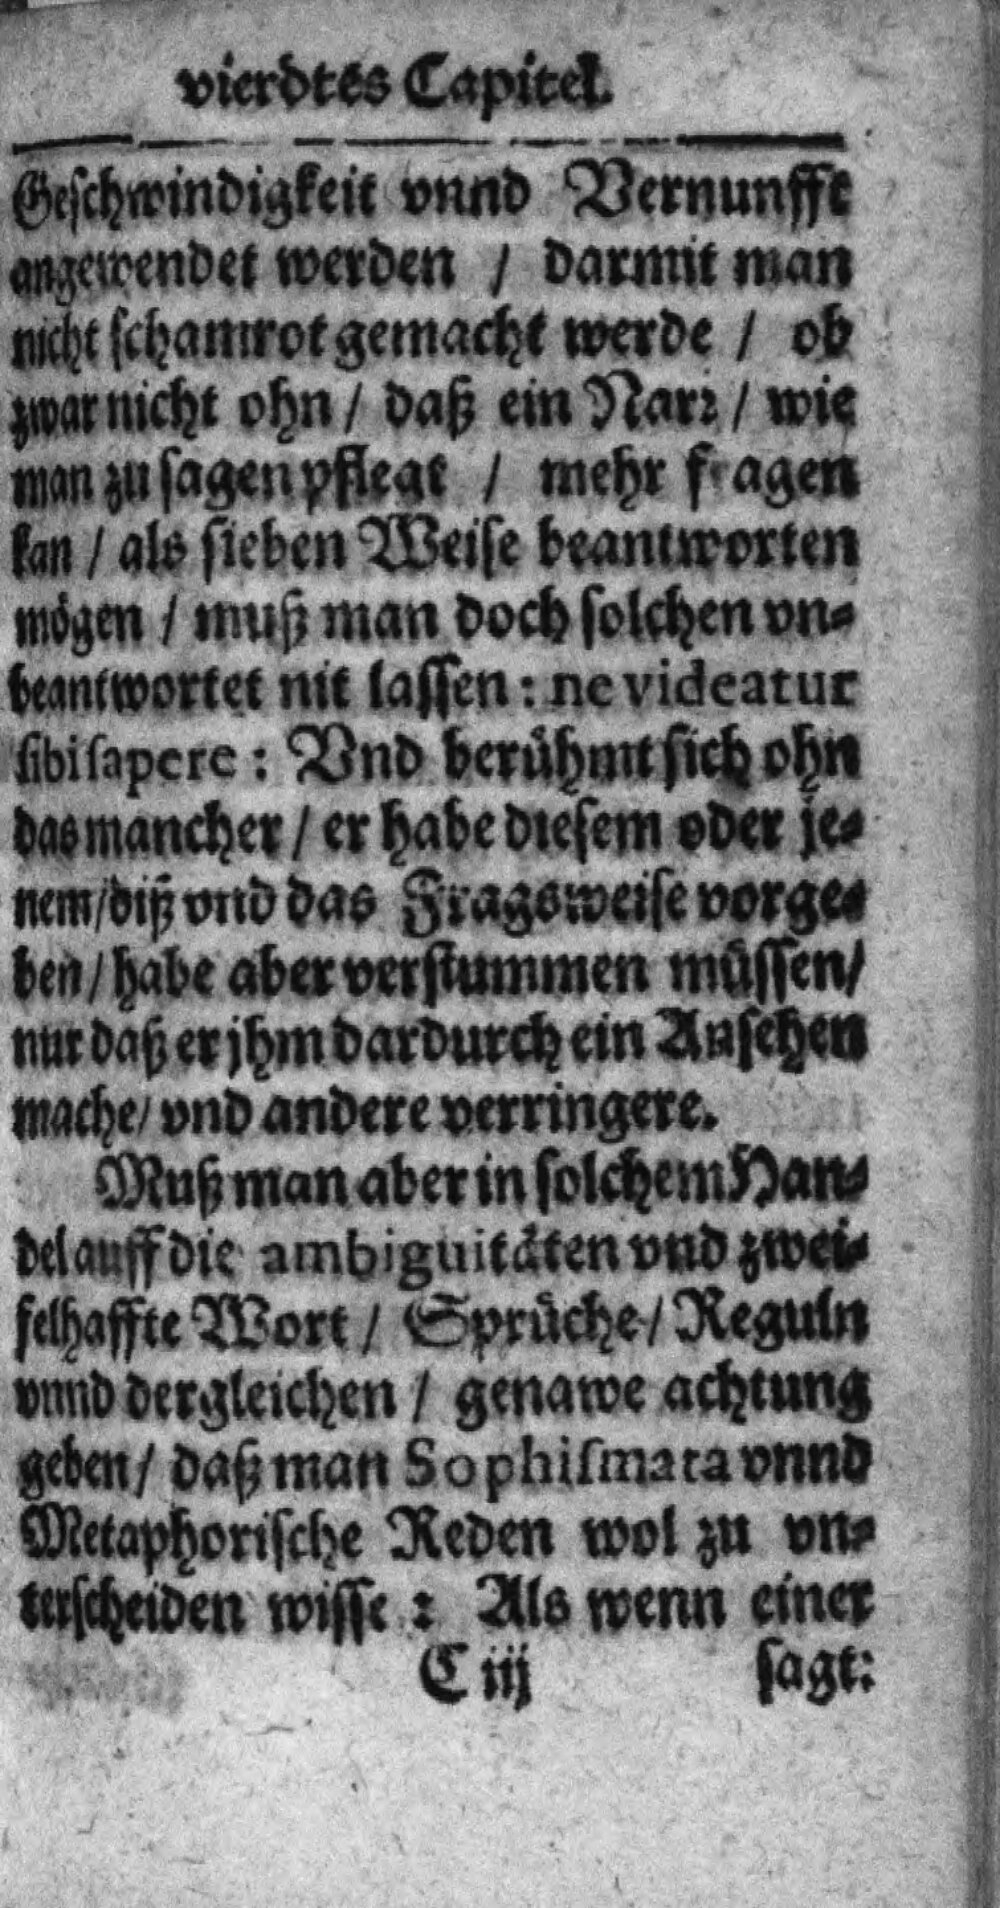 vierdtes Capitel.
Geschwindigkeit vnnd Vernunfft
angewendet werden / darmit man
nicht schamrot gemacht werde / ob
zwar nicht ohn / daß ein Narr / wie
man zu sagen pflegt / mehr fragen
kan / als sieben Weise beantworten
mögen / muß man doch solchen vn-
beantwortet nit lassen: ne videatur
sibi sapere: Vnd berühmt sich ohn
das mancher / er habe diesem oder je-
nem/diß vnd das Fragsweise vorge-
ben / habe aber verstummen müssen/
nur daß er jhm dardurch ein Ansehen
mache/ vnd andere verringere.
Muß man aber in solchem Han-
del auff die ambiguitäten vnd zwei-
felhaffte Wort / Sprüche / Reguln
vnnd dergleichen / genawe achtung
geben / daß man Sophismata vnnd
Metaphorische Reden wol zu vn-
terscheiden wisse : Als wenn einer
C iij sagt: